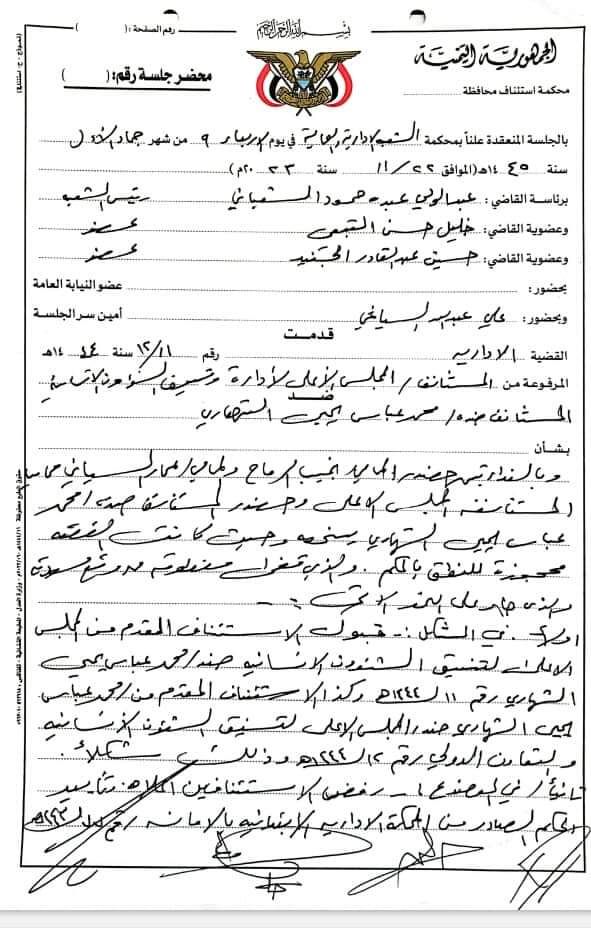 بسم الله الرحمن الرحيم
رقم الصفحة : ( )
الجمهورية اليمنية
محكمة استئناف محافظة
محضر جلسة رقم: ( )
بالجلسة المنعقدة علناً بمحكمة الشعبه الادارية في يوم الاربعاء ٩ من شهر جماد الأول
سنة ١٤٤٥هـ (الموافق ٢٢ / ١١ سنة ٢٠٢٣م)
برئاسة القاضي : عبدالولي عبده حمود الشعباني رئيس الشعبه
وعضوية القاضي : خليل حسن عضو
وعضوية القاضي : حسين عبدالقادر عضو
بحضور : عضو النيابة العامة
وبحضور : علي عبدالله السياغي أمين سر الجلسة
قدمت
القضية الادارية رقم ١٢/١١ سنة ١٤٤٤هـ
المرفوعة من المستأنف / المجلس الأعلى لأدارة وتنسيق الشؤون الانسانية
ضد
المستأنف ضده / محمد عباس يحيى الشهاري
بشأن
وبالنداء تبين حضور المحامي نجيب والمحامي / عمار السياني محاميا
المستأنف المجلس الاعلى وحضور المستأنف ضده / محمد
عباس يحيى الشهاري بشخصه وحيث كانت القضيه
محجوزة للنطق بالحكم والذي
والذي جاء على النحو الاتي :-
اولاً / في الشكل :- قبول الاستئناف المقدم من المجلس
الاعلى لتنسيق الشئون الانسانيه ضد / محمد عباس يحيى
الشهاري رقم ١١ لـ ١٤٤٤هـ وكذا الاستئناف المقدم من / محمد عباس
يحيى الشهاري ضد المجلس الاعلى لتنسيق الشؤون الأنسانيه
والتعاون الدولي رقم ١٢ لـ ١٤٤٤هـ وذلك شكلاً .
ثانياً / في الموضوع :- رفض الاستئنافين بتأييد
الحكم الصادر من المحكمة الاداريه الابتدائيه بالامانه رقم